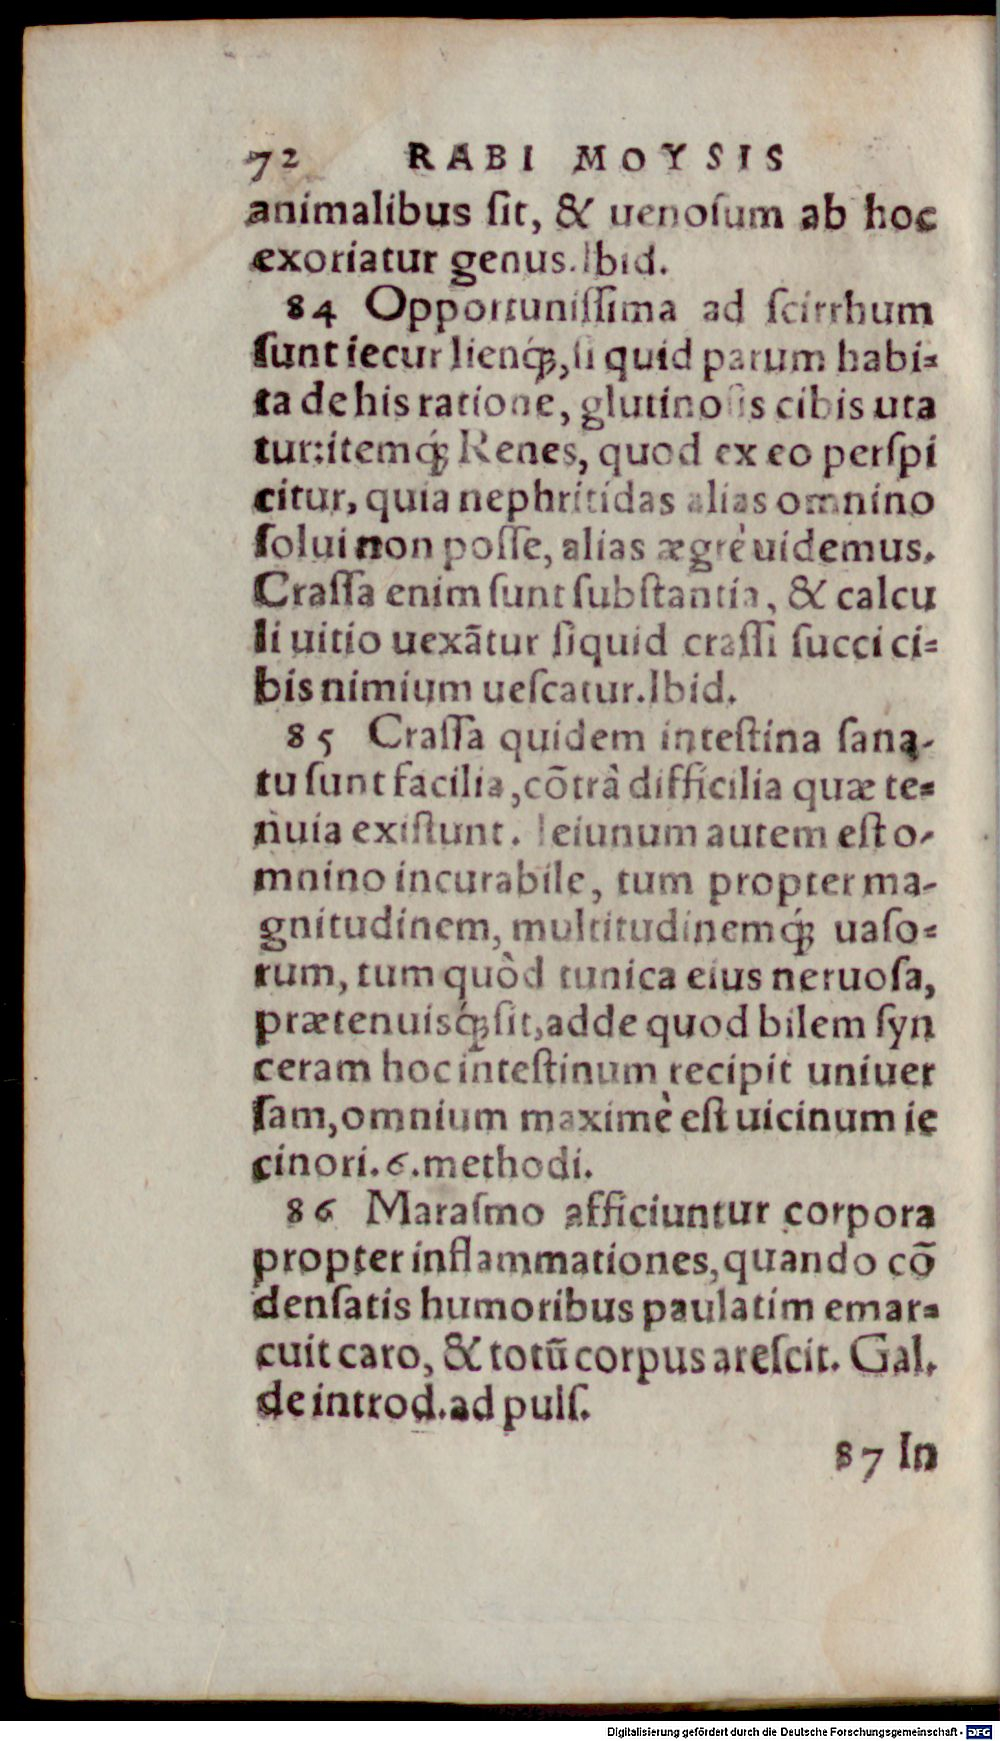 72 RABI MOYSIS
animalibus ſit, & uenoſum ab hoc
exoriatur genus. Ibid.
84 Opportuniſſima ad ſcirrhum
ſunt iecur lienq́ꝫ, ſi quid parum habi=
ta de his ratione, glutinoſis cibis uta
tur: itemq́ꝫ Renes, quod ex eo perſpi
citur, quia nephritidas alias omnino
ſolui non poſſe, alias ægrè uidemus.
Craſſa enim ſunt ſubſtantia, & calcu
li uitio uexãtur ſiquid craſſi ſucci ci=
bis nimium ueſcatur. Ibid.
85 Craſſa quidem inteſtina ſana-
tu ſunt facilia, cõtrà difficilia quæ te=
nuia exiſtunt. Ieiunum autem eſt o-
mnino incurabile, tum propter ma-
gnitudinem, multitudinemq́ꝫ uaſo=
rum, tum quòd tunica eius neruoſa,
prætenuisq́ꝫ ſit, adde quod bilem ſyn
ceram hoc inteſtinum recipit uniuer
ſam, omnium maximè eſt uicinum ie
cinori. 6. methodi.
86 Maraſmo afficiuntur corpora
propter inflammationes, quando cõ
denſatis humoribus paulatim emar=
cuit caro, & totũ corpus areſcit. Gal.
de introd. ad pulſ.
87 In
Digitalisierung gefördert durch die Deutsche Forschungsgemeinschaft - DFG